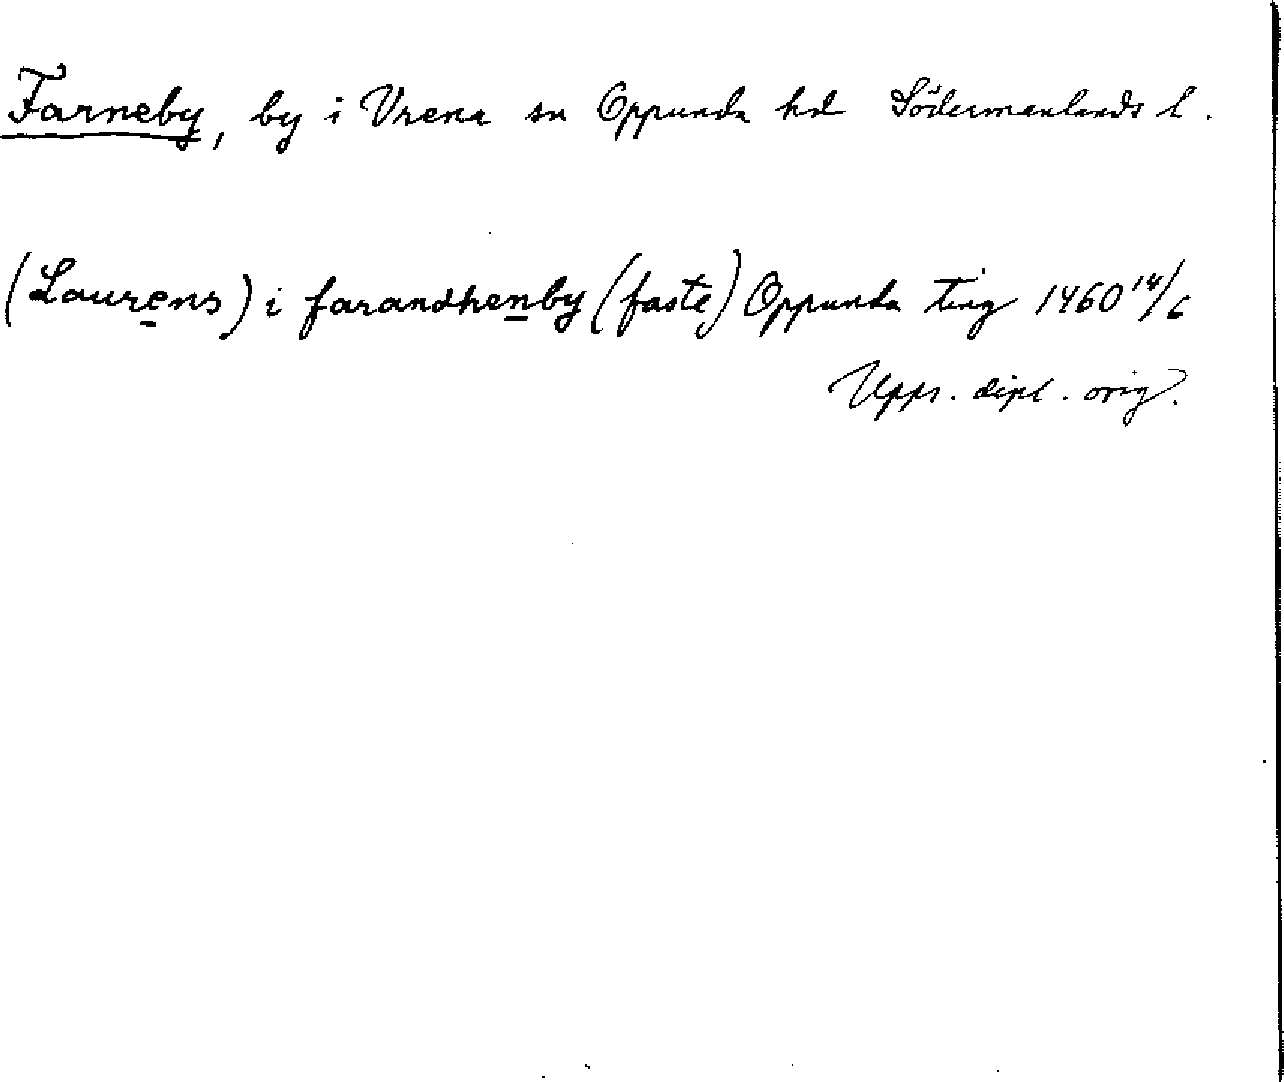 Farneby, by i Vrena sn Oppunda hd Södermanlands l.
(Laurens) i farandhenby (faste) Oppunda ting 1460 14/6
Upps. dipl. orig.